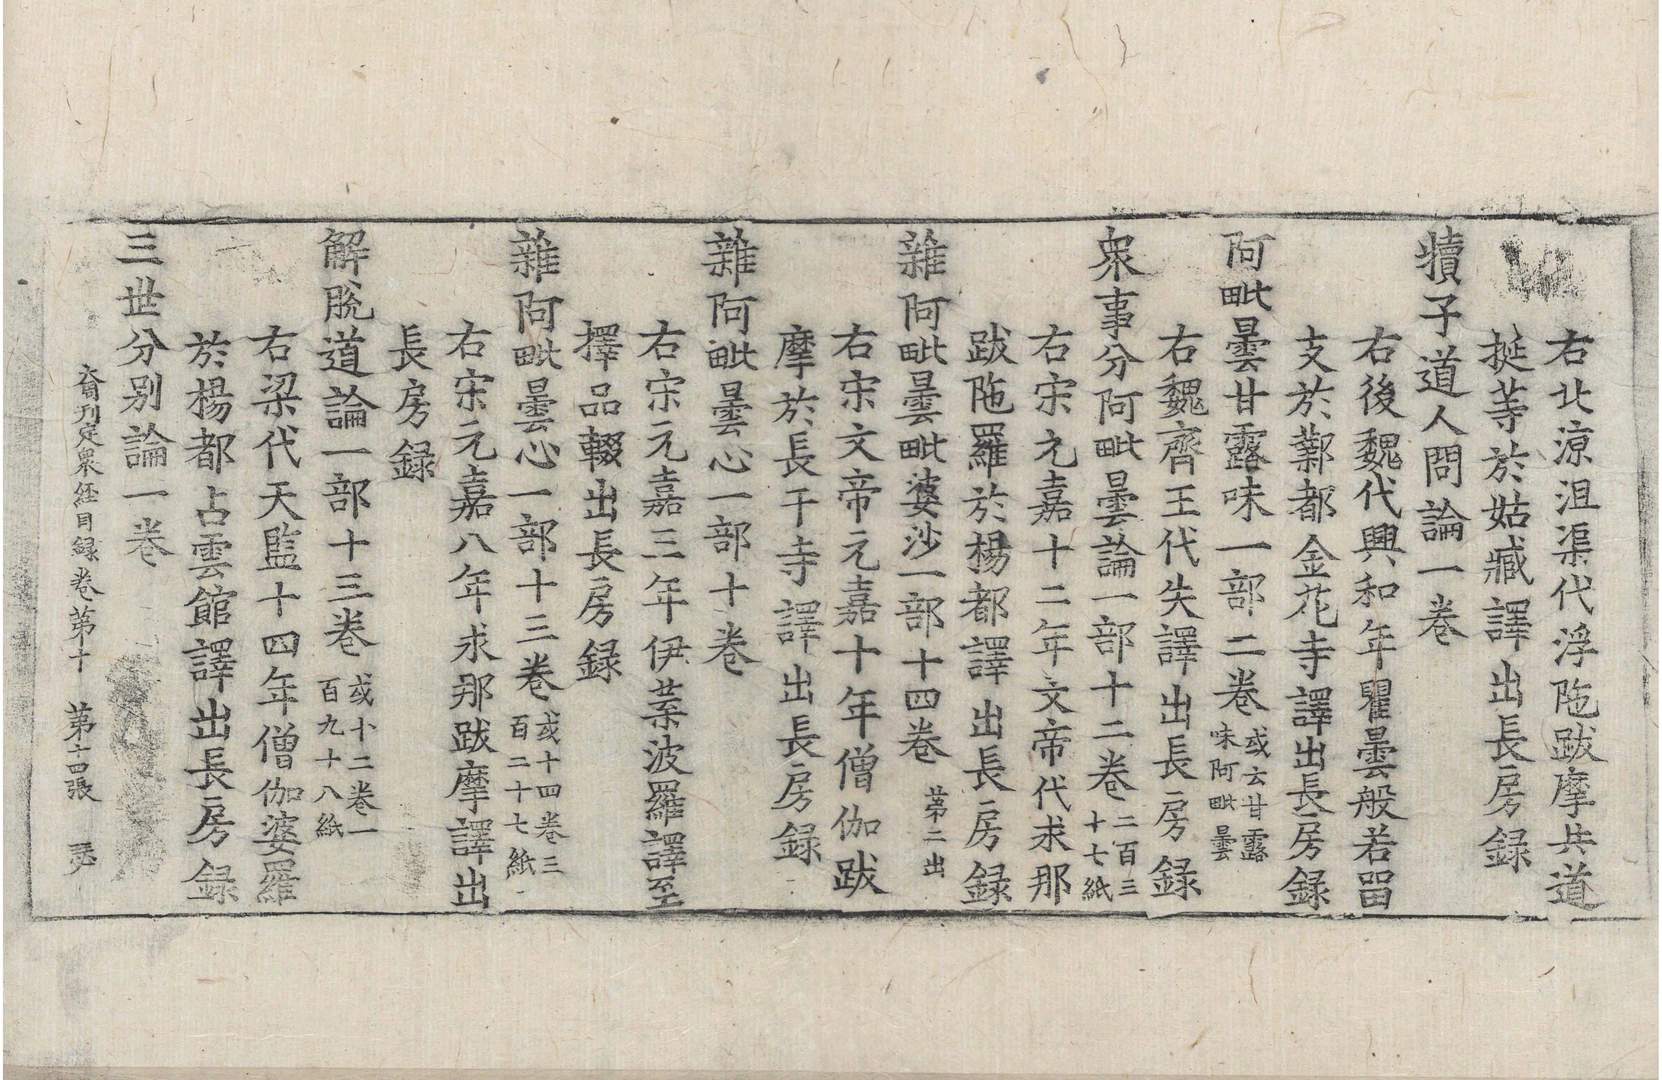 右北涼沮渠代浮陁跋摩共道
挻等於姑臧譯出長房録
犢子道人問論一卷
右後魏代興和年瞿曇般若留
支於鄴都金花寺譯出長房録
阿毗曇甘露味一部二卷或云甘露味阿毗曇
右魏齊王代失譯出長房録
衆事分阿毗曇論一部十二卷二百三十七紙
右宋元嘉十二年文帝代求那
跋陁羅於楊都譯出長房録
雜阿毗曇毗婆沙一部十四卷第二出
右宋文帝元嘉十年僧伽跋
摩於長干寺譯出長房録
雜阿毗曇心一部十卷
右宋元嘉三年伊葉波羅譯至
擇品輟出長房録
雜阿毗曇心一部十三卷或十四卷三百二十七紙
右宋元嘉八年求那跋摩譯出
長房録
解脫道論一部十三卷或十二卷一百九十八紙
右梁代天監十四年僧伽婆羅
於楊都占雲館譯出長房録
三世分別論一卷
刋定衆経目録卷第十 第十四張